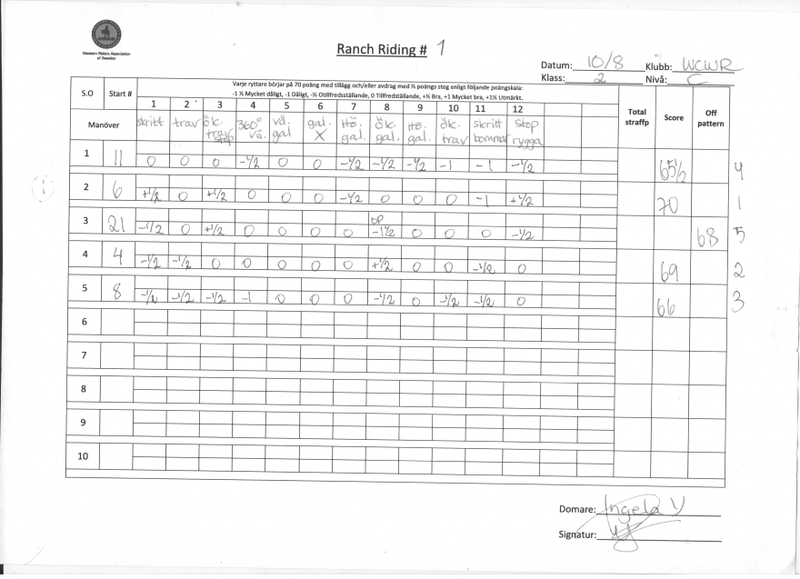 Western Riders Association
of Sweden
Ranch Riding # 1
Datum: 10/8 Klubb: WCWR
Klass: 2 Nivå: C
Varje ryttare börjar på 70 poäng med tillägg och/eller avdrag med ½ poängs steg enligt följande poängskala:
-1 ½ Mycket dåligt, -1 Dåligt, -½ Otillfredsställande, 0 Tillfredställande, +½ Bra, +1 Mycket bra, +1½ Utmärkt.
S.O Start # 1 2 3 4 5 6 7 8 9 10 11 12 Total straffp Score Off pattern
Manöver skritt trav ök. trav stop 360° vä. vä. gal gal. X Hö. gal. ök. gal. Hö. gal. ök. trav skritt bommar stop rygga
1 11 0 0 0 -1/2 0 0 -1/2 -1/2 -1/2 -1 -1 -1/2 65½ 4
2 6 +1/2 0 +1/2 0 0 0 -1/2 0 0 0 -1 +1/2 70 1
3 21 -1/2 0 +1/2 0 0 0 0 OP -1½ 0 0 0 -1/2 68 5
4 4 -1/2 -1/2 0 0 0 0 0 +1/2 0 0 -1/2 0 69 2
5 8 -1/2 -1/2 -1/2 -1 0 0 0 -1/2 0 -1/2 -1/2 0 66 3
6
7
8
9
10
Domare: Ingela V
Signatur: